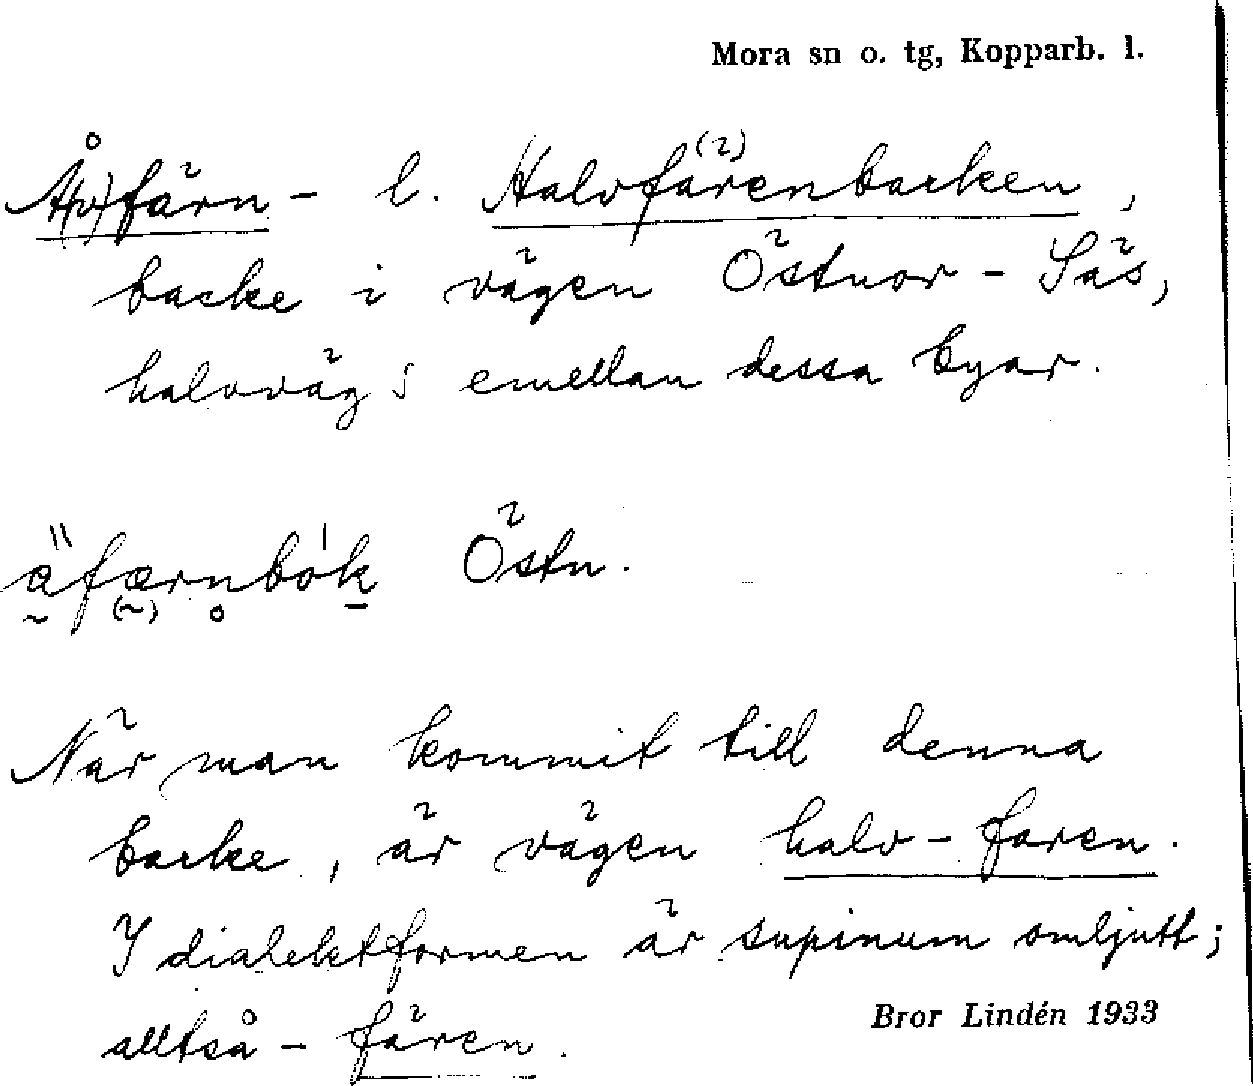 Mora sn o. tg, Kopparb. l.
Å(v)färn- l. Halvfärenbacken,
backe i vägen Östnor - Säs,
halvvägs emellan dessa byar.
Östn.
När man kommit till denna
backe, är vägen halv-faren.
I dialektformen är supinum omljutt;
alltså - fären.
Bror Lindén 1933